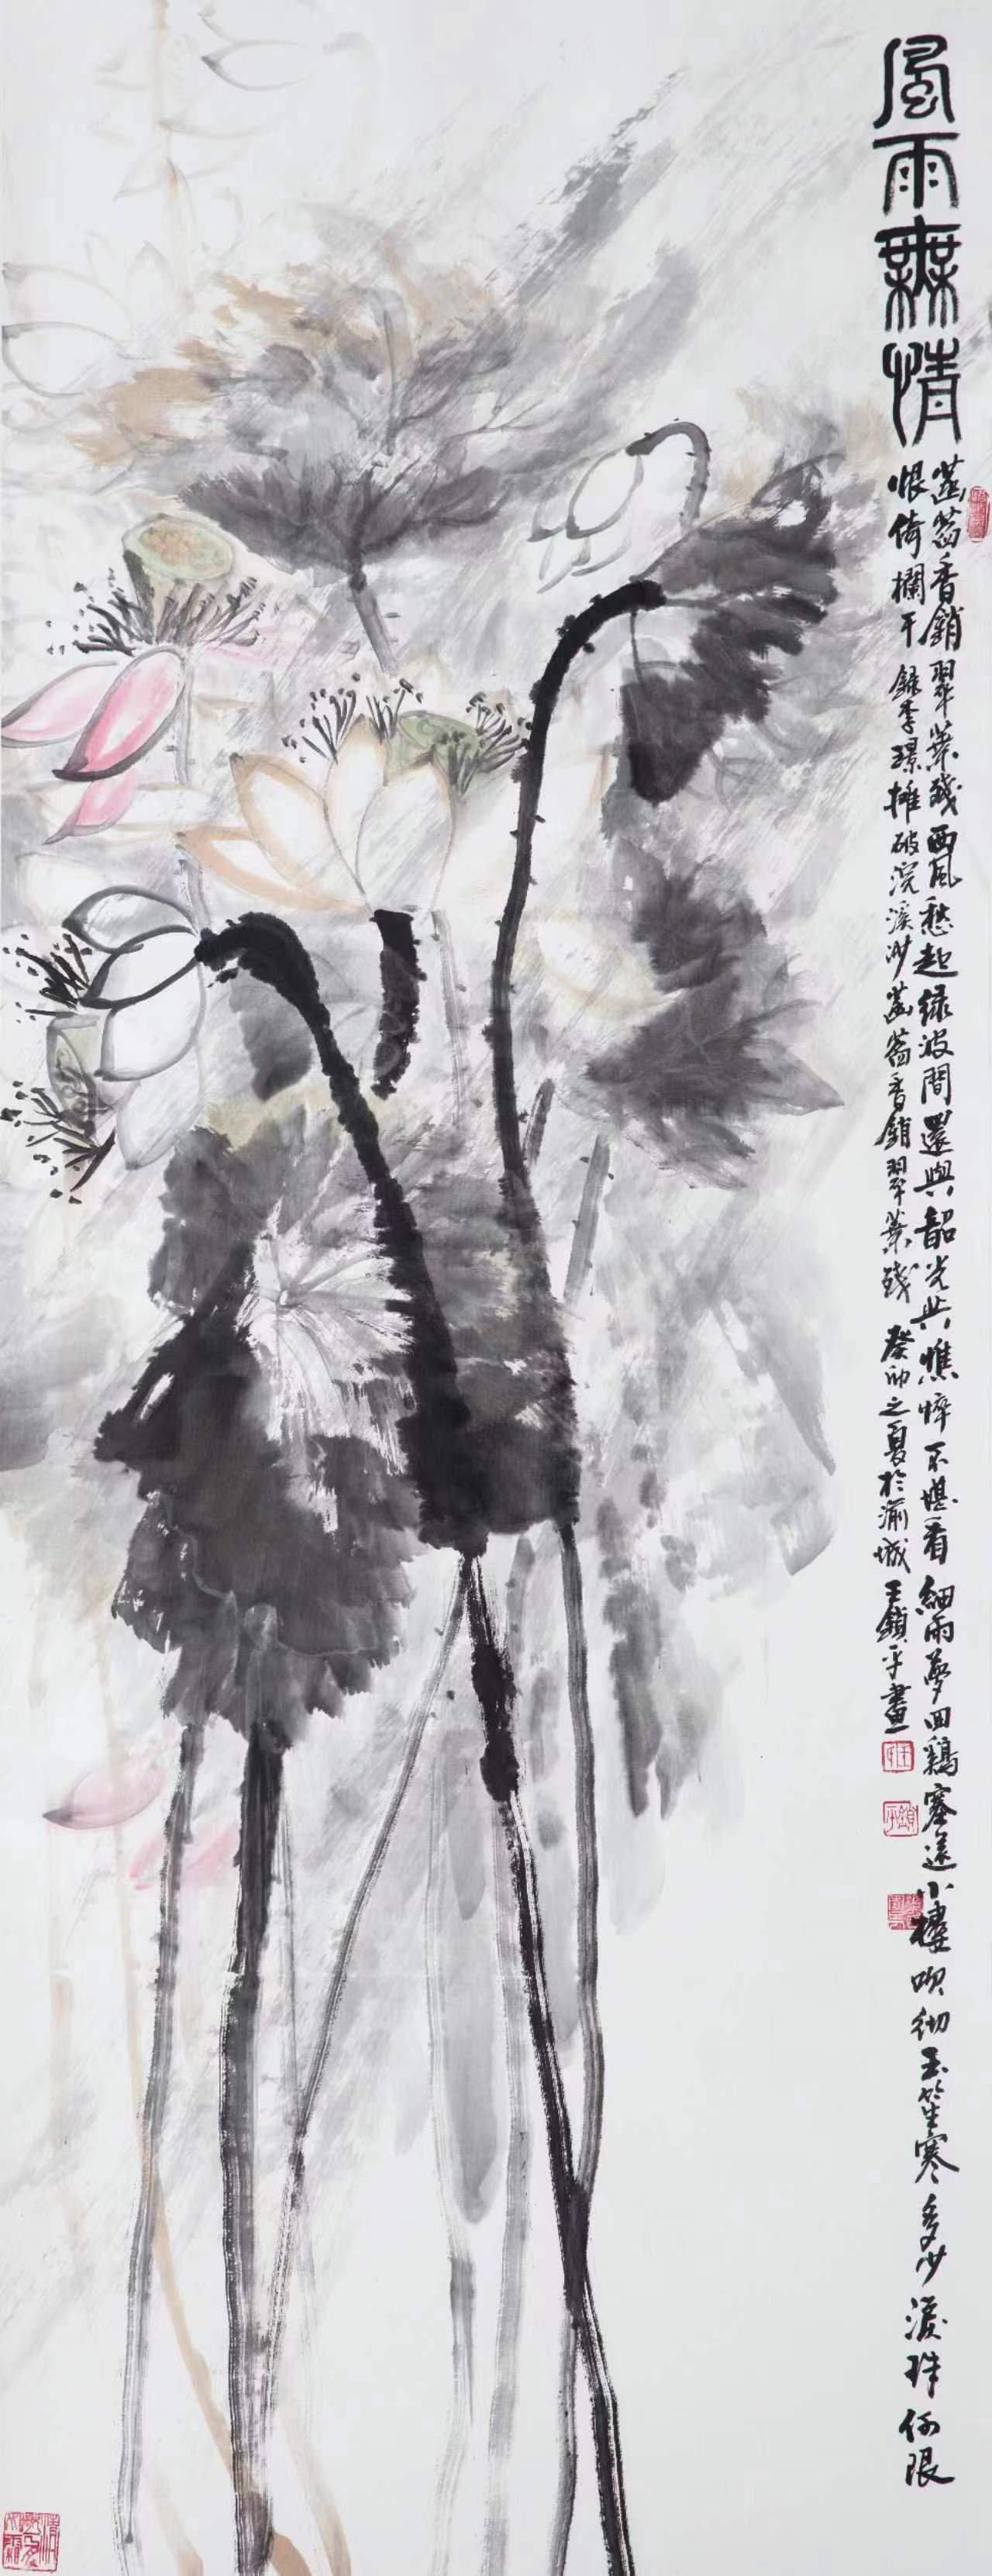 風雨無情
菡萏香銷翠葉殘西風愁起綠波間還與韶光共憔悴不堪看細雨夢回鷄塞遠小樓吹彻玉笙寒多少淚珠何限
恨倚欄干錄李璟攤破浣溪沙菡萏香銷翠葉殘癸卯之夏於渝城王鎖平畫